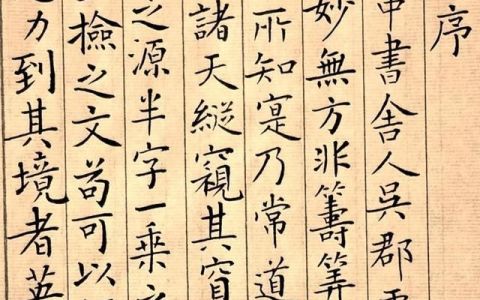 序
中書舍人吳郡
妙無方非籌筭
所知寔乃常道
諸天縱窺其
之源半字一乘
撿之文苟可以
力到其境者英